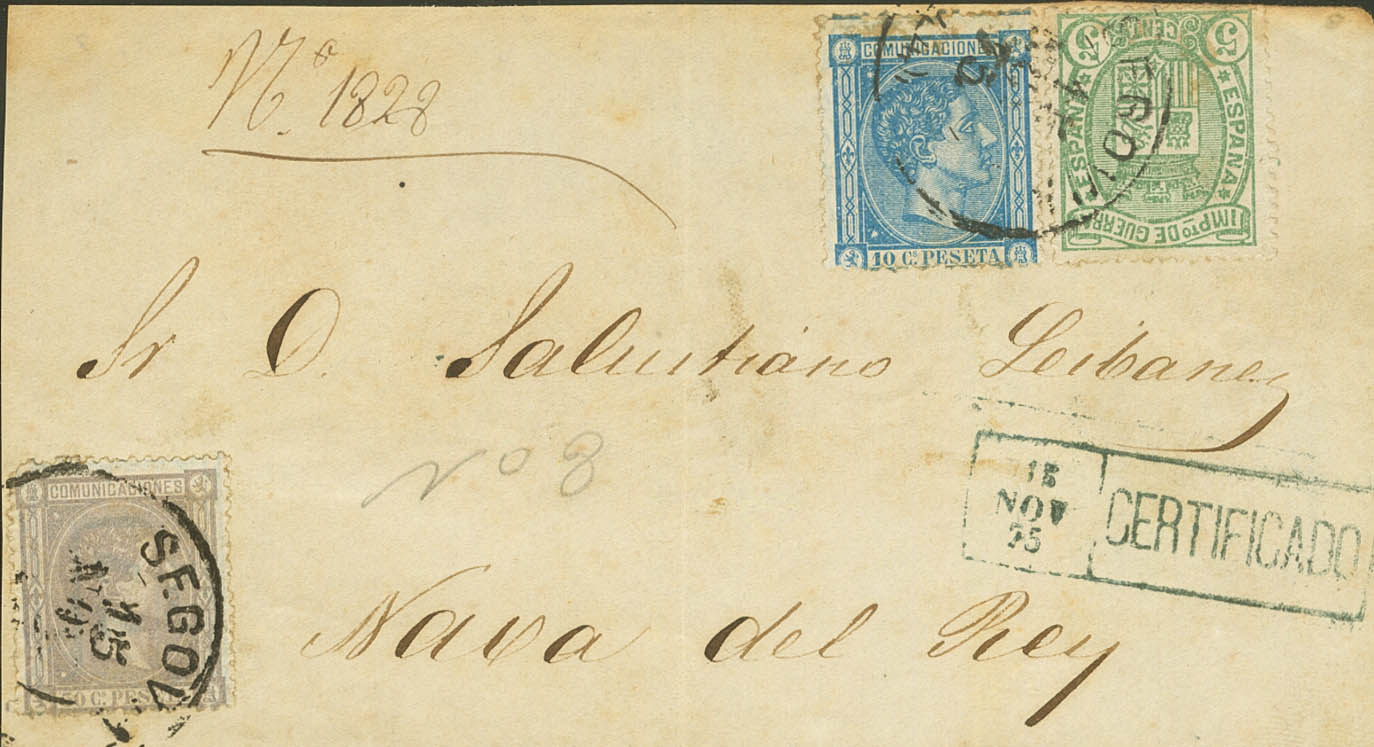 Nº. 1828
COMUNICACIONES
10 Cs PESETA
5 CENTS 5
ESPAÑA
IMPTO DE GUERRA
SEGOVI
Sr D. Salustiano Leibanez
Nº 8
15
NOV
75
CERTIFICADO
COMUNICACIONES
C. PESETA
SEGOV
Nava del Rey